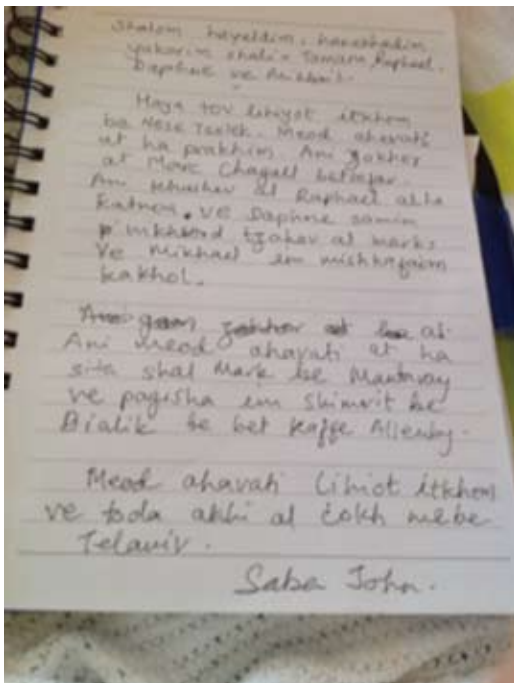 Shalom hayeldim, hanakhadim,
yakarim shali - Tamara, Raphael,
Daphne ve Mikhail.
Haya tov lihiyot itkhem
be Nese Tsolek. Meod ahavati
ut ha prakhim. Ani zokher
at Marc Chagall
Ani khushev al Raphael al ha
katnoa. ve Daphne samim
tzahov al
ve Mikhael em mishkafaim
kakhol.
Ani meod ahavati at ha
sita shal Mark be
ve pagisha em Shimrit be
Bialik be bet kaffe Allenby.
Meod ahavati lihiot itkhem
ve toda akhi al mebe
Telaviv.
Saba John.